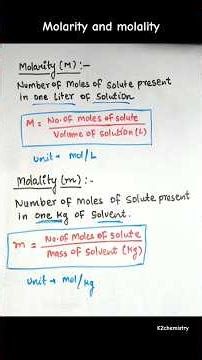 Molarity and molality
Molarity (M) :-
Number of moles of solute present
in one liter of solution
M = No. of moles of solute
Volume of solution (L)
unit → mol/L
Molality (m) :-
Number of moles of solute present
in one kg of solvent.
m = No. of moles of solute
mass of solvent (kg)
unit → mol/kg
K2chemistry